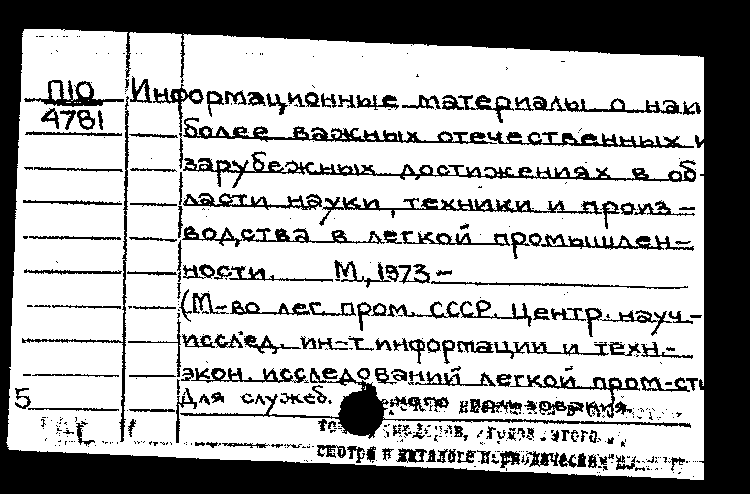 П10
4781
Информационные материалы о наи
более важных отечественных и
зарубежных достижениях в об-
ласти науки, техники и произ-
водства в легкой промышлен-
ности. М., 1973-
(М-во лег. пром. СССР. Центр. науч.-
исслед. ин-т информации и техн.-
экон. исследований легкой пром-сти
Для служеб. пользования
5
смотри в каталоге периодических